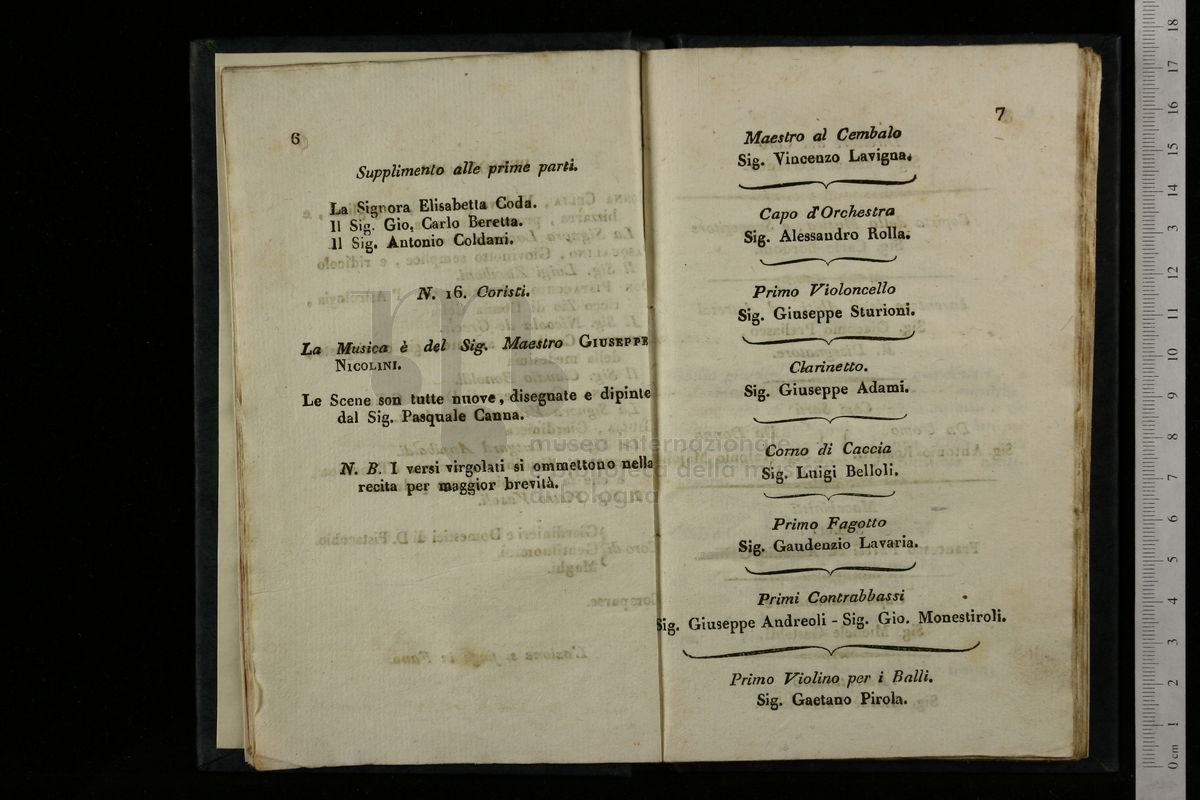 6
Supplimento alle prime parti.
La Signora Elisabetta Coda.
Il Sig. Gio. Carlo Beretta.
Il Sig. Antonio Coldani.
N. 16. Coristi.
La Musica è del Sig. Maestro GIUSEPPE
NICOLINI.
Le Scene son tutte nuove, disegnate e dipinte
dal Sig. Pasquale Canna.
N. B. I versi virgolati si ommettono nella
recita per maggior brevità.
7
Maestro al Cembalo
Sig. Vincenzo Lavigna.
Capo d'Orchestra
Sig. Alessandro Rolla.
Primo Violoncello
Sig. Giuseppe Sturioni.
Clarinetto.
Sig. Giuseppe Adami.
Corno di Caccia
Sig. Luigi Belloli.
Primo Fagotto
Sig. Gaudenzio Lavaria.
Primi Contrabbassi
Sig. Giuseppe Andreoli - Sig. Gio. Monestiroli.
Primo Violino per i Balli.
Sig. Gaetano Pirola.
museo internazionale
e biblioteca della musica
di bologna
18
17
16
15
14
13
12
11
10
9
8
7
6
5
4
3
2
1
0 cm